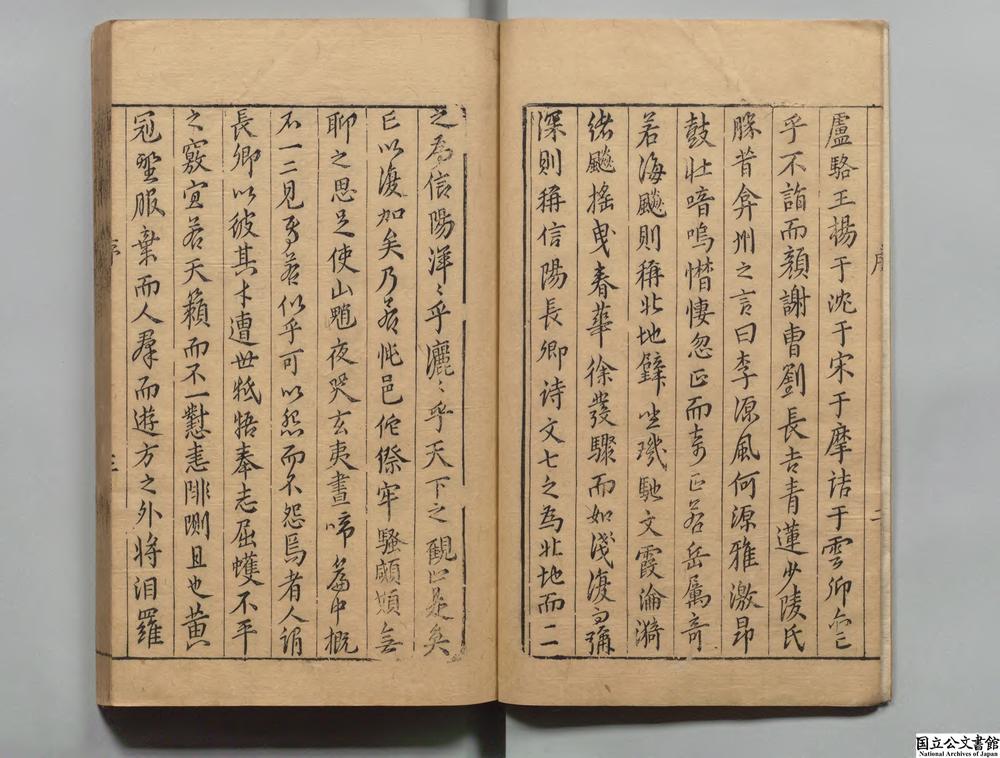 盧駱王楊于沈于宋于摩詰于雲卿
乎不詣而顏謝曹劉長吉青蓮少陵氏
昔弇州之言曰李源風何源雅激昂
鼓壯喑嗚憯悽忽正而奇正若岳厲奇
若海飈則稱北地壁坐璣馳文霞淪漪
緒飈搖曳春華徐發驟而如淺復而彌
深則稱信陽長卿诗文七之為北地而二
序
二
之為信陽洋〻乎灑〻乎天下之觀止是矣
已以復加矣乃若忳邑侘傺牢騷顑頷無
聊之思足使山魈夜哭玄夷晝啼篇中概
不一二見焉若似乎可以怨而不怨焉者人謂
長卿以彼其才遭世牴牾奉志屈蠖不平
之竅宜若天籟而不一懟恚陫惻且也黃
冠埜服棄而人羣而遊方之外将泪羅
序
三
国立公文書館
National Archives of Japan